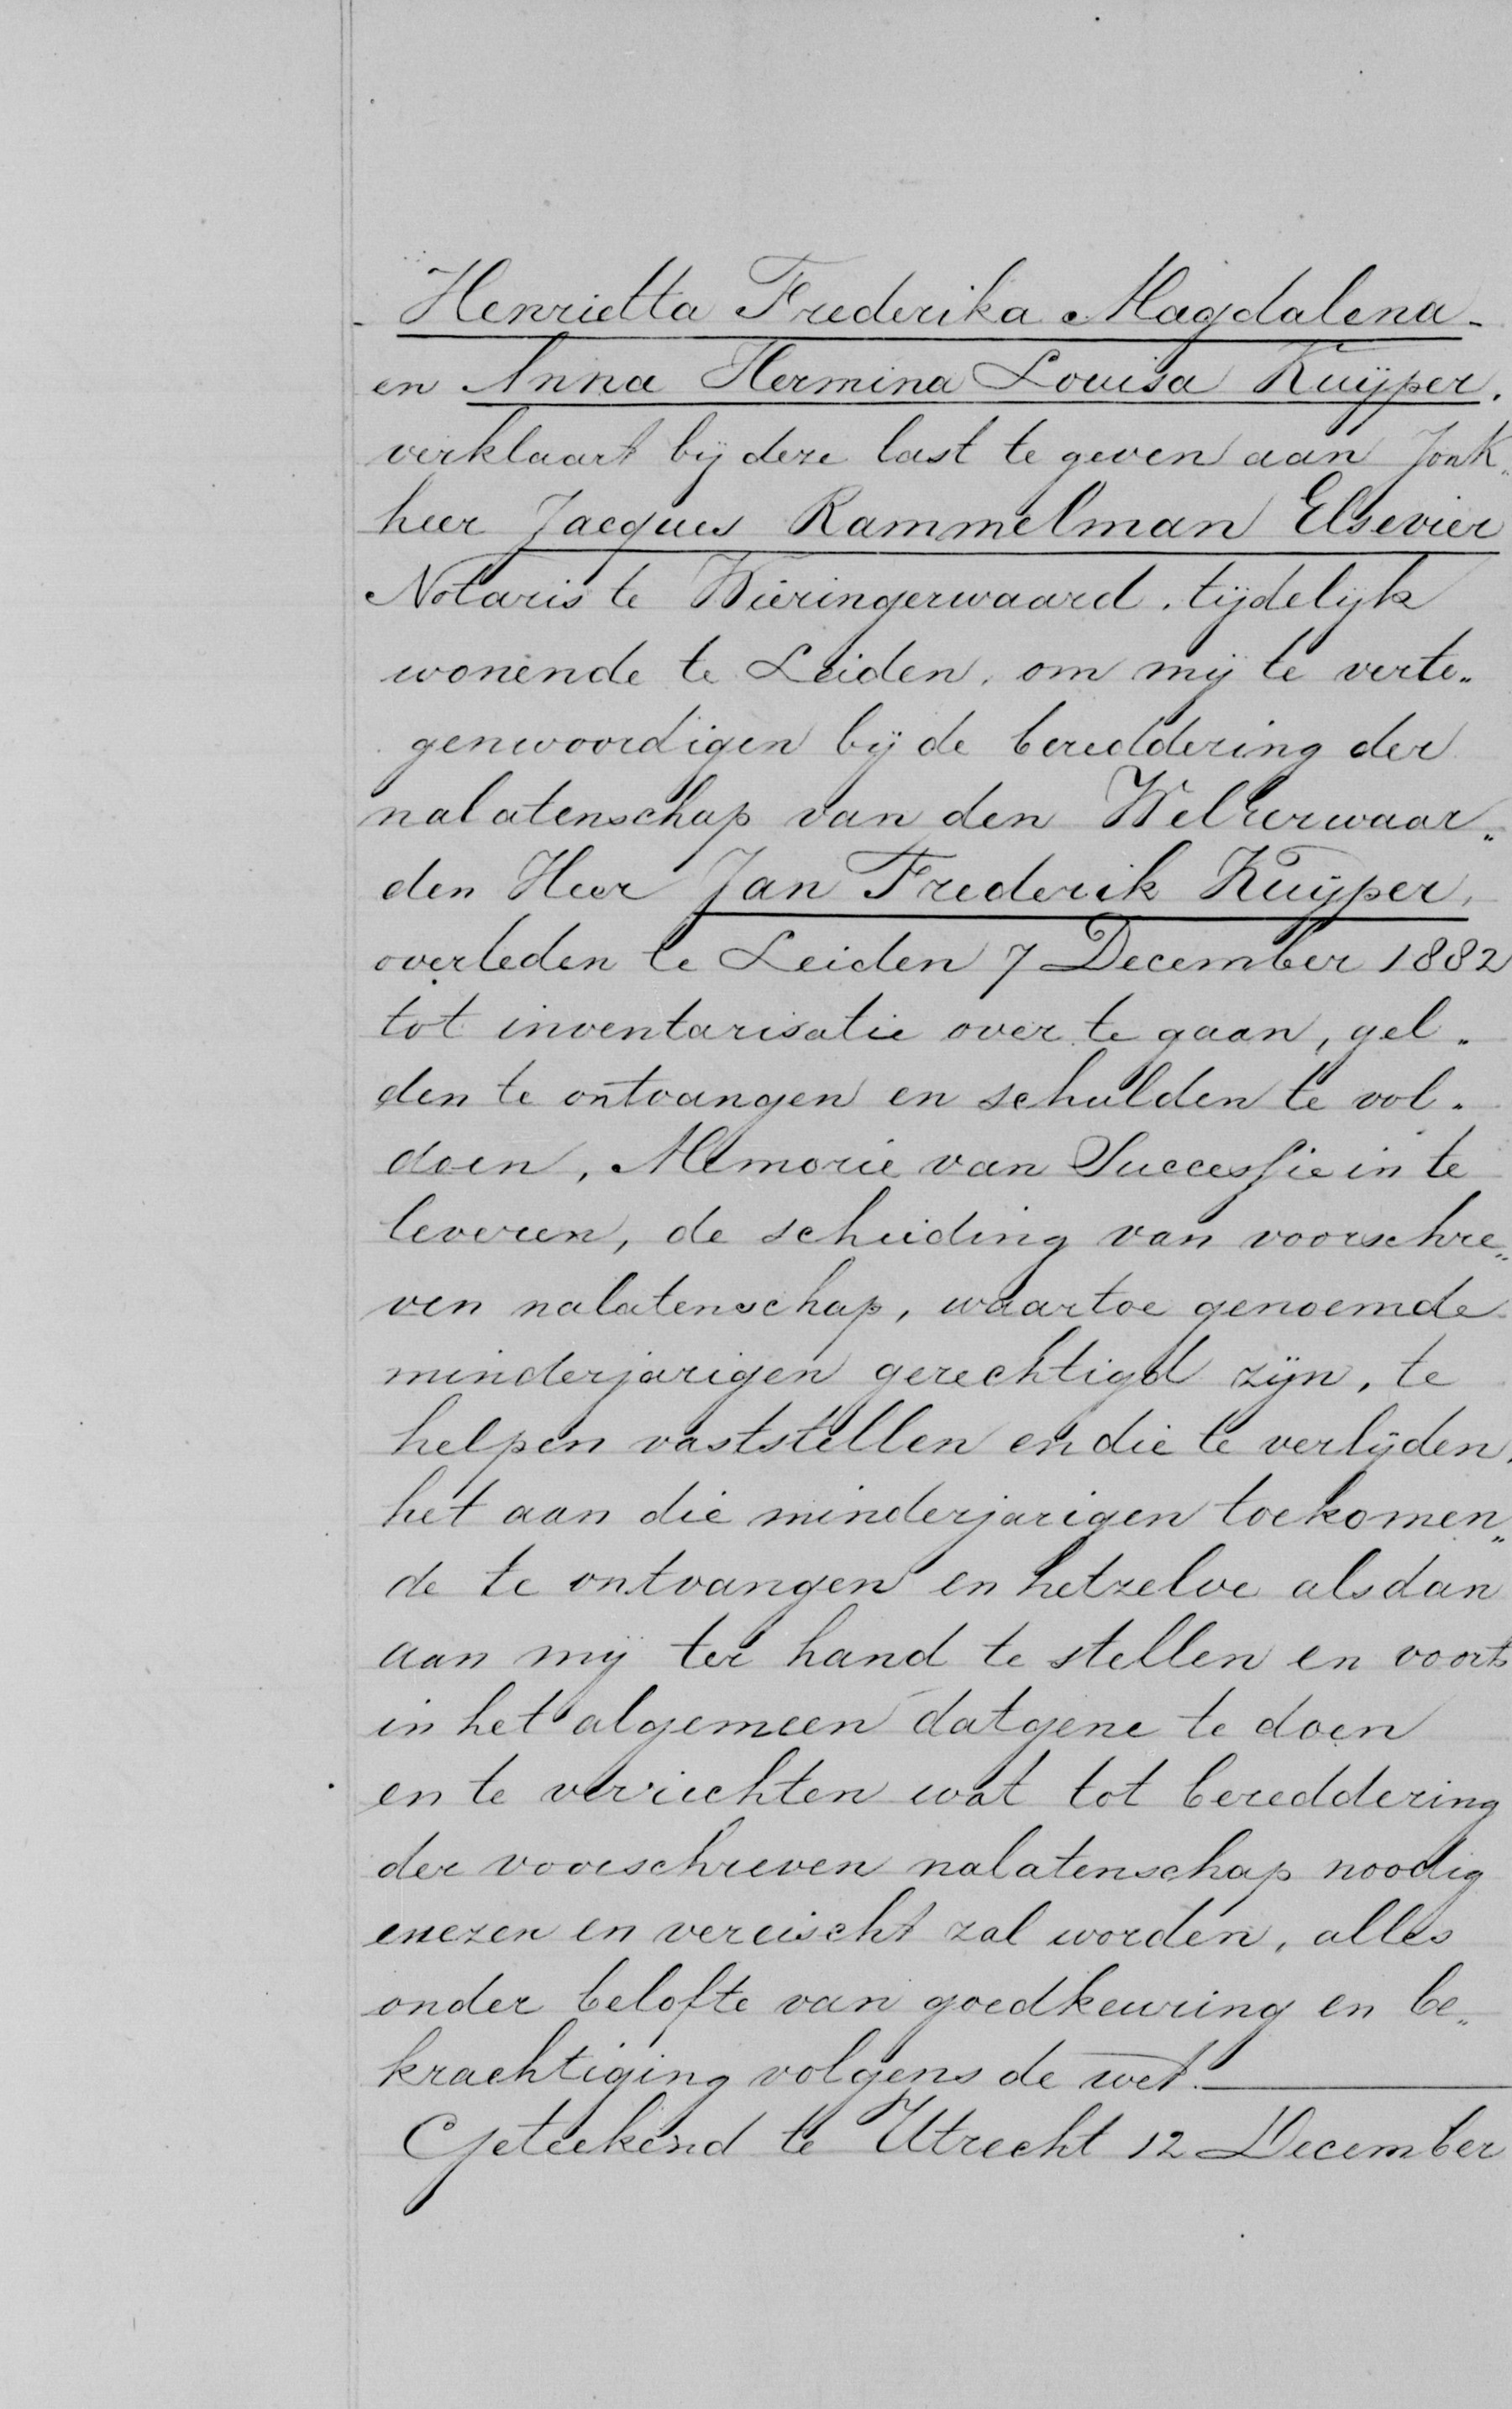 Henrietta Frederika Magdalena
en Anna Hermina Louisa Kuijper.
verklaart bij deze last te geven aan Jonk„
heer Jacques Rammelman Elsevier
Notaris te Wieringerwaard, tijdelijk
wonende te Leiden, om mij te verte„
genwoordigen bij de bereddering der
nalatenschap van den WelEerwaar„
den Heer Jan Frederik Kuijper,
overleden te Leiden 7 December 1882
tot inventarisatie over te gaan, gel„
den te ontvangen en schulden te vol„
doen, Memorie van Successie in te
leveren, de scheiding van voorschre„
ven nalatenschap, waartoe genoemde
minderjarigen gerechtigd zijn, te
helpen vaststellen en die te verlijden,
het aan die minderjarigen toekomen„
de te ontvangen en hetzelve alsdan
aan mij ter hand te stellen en voorts
in het algemeen datgene te doen
en te verrichten wat tot bereddering
der voorschreven nalatenschap noodig
enezen en vereischt zal worden, alles
onder belofte van goedkeuring en be„
krachtiging volgens de wet.
Geteekend te Utrecht 12 December